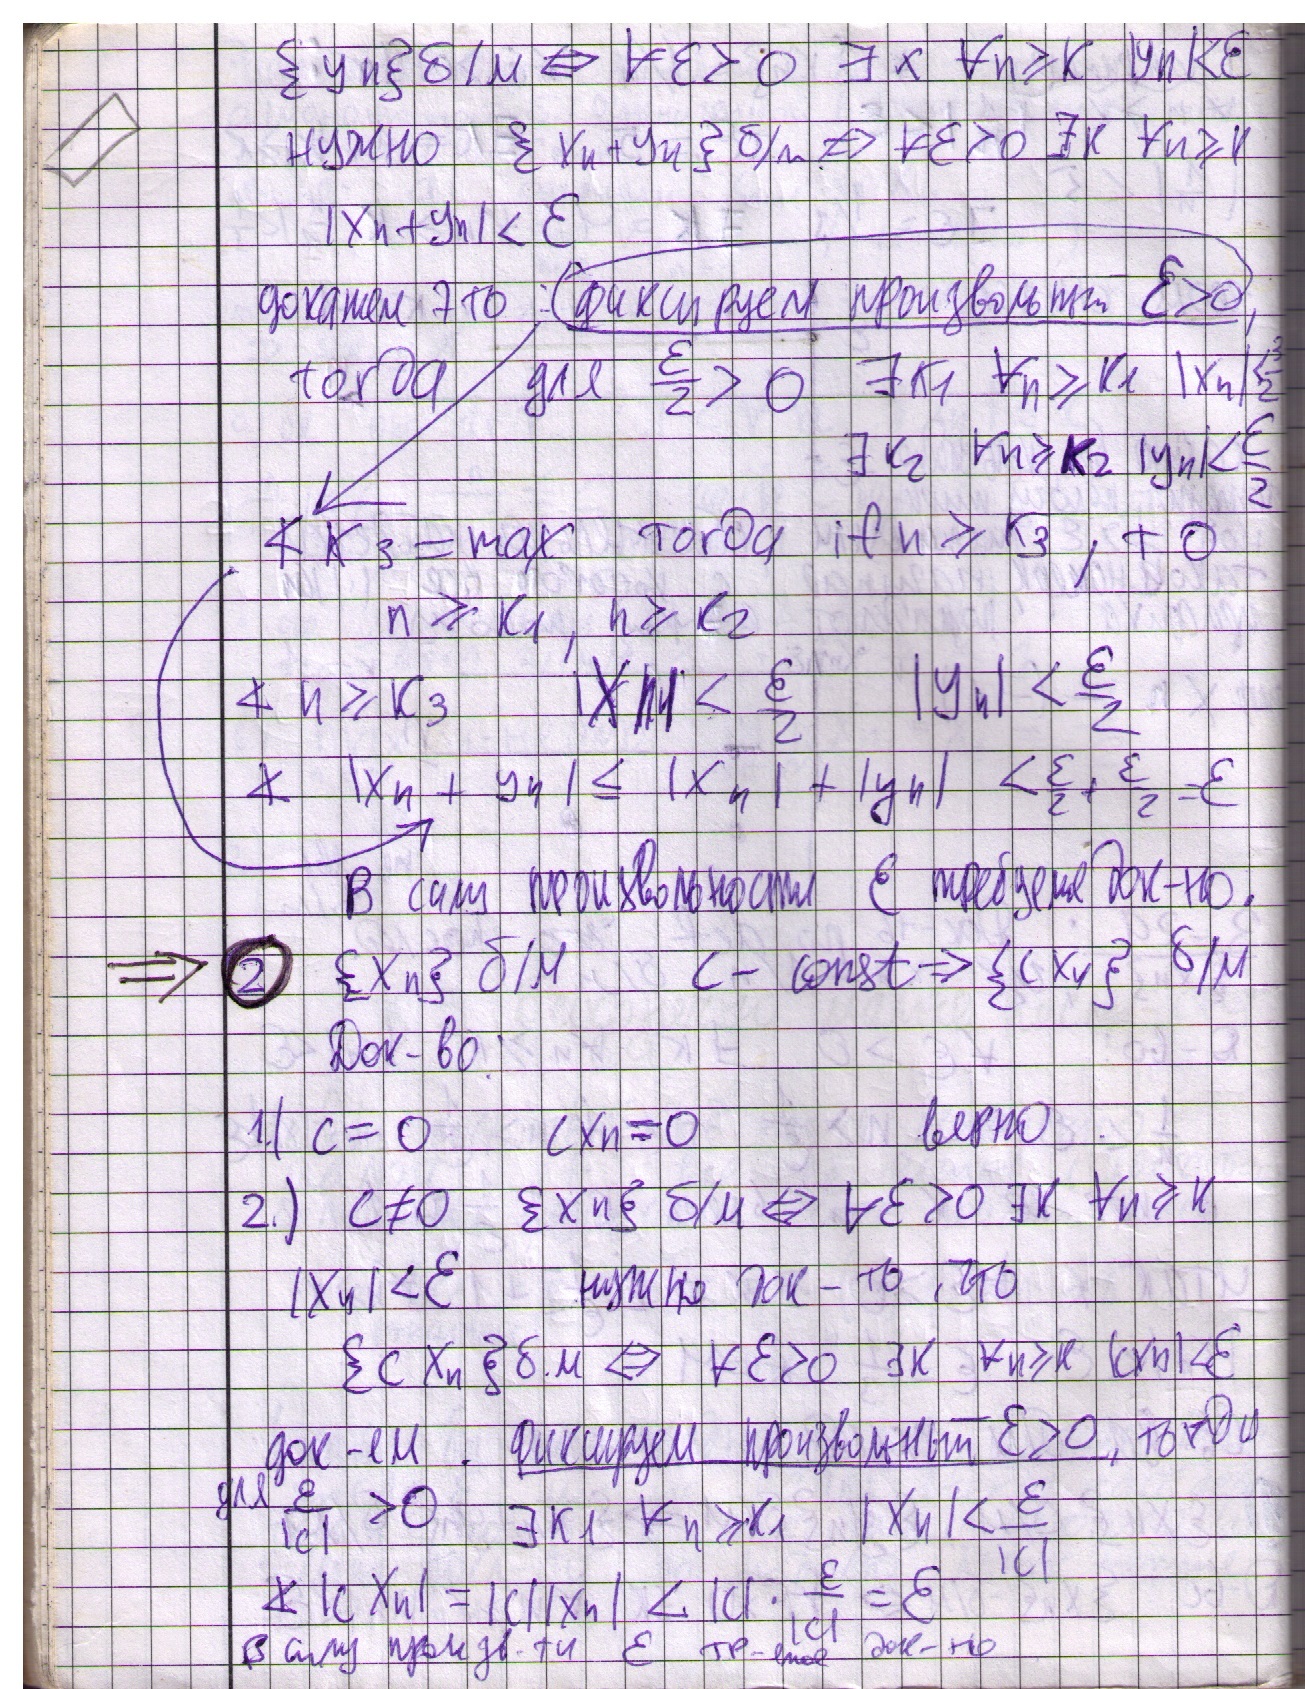 {yn} б/м ⇔ ∀ε>0 ∃ к ∀n⩾к |yn|<ε
нужно {xn+yn} б/м ⇔ ∀ε>0 ∃к ∀n⩾к
|xn+yn|<ε
докажем это : фиксируем произвольн ε>0,
тогда для ε/2 > 0 ∃к1 ∀n⩾к1 |xn|<ε/2
∃к2 ∀n⩾к2 |yn|<ε/2
∢ к3 = max тогда if n ⩾ к3, то
n ⩾ к1, n ⩾ к2
∢ n ⩾ к3 |xn| < ε/2 |yn| < ε/2
∢ |xn + yn| ≤ |xn| + |yn| < ε/2 + ε/2 = ε
В силу произвольности ε требуемое док-но.
⇒ 2 {xn} б/м c – const ⇒ {cxn} б/м
Док-во:
1.) c = 0 cxn = 0 верно
2.) c≠0 {xn} б/м ⇔ ∀ε>0 ∃к ∀n⩾к
|xn|<ε нужно док-ть, что
{c xn} б.м ⇔ ∀ε>0 ∃к ∀n⩾к |cxn|<ε
док-ем. Фиксируем произвольный ε>0, тогда
для ε/|c| > 0 ∃к1 ∀n⩾к1 |xn| < ε/|c|
∢ |c xn| = |c||xn| < |c| · ε/|c| = ε
В силу произв-ти ε тр-емое док-но